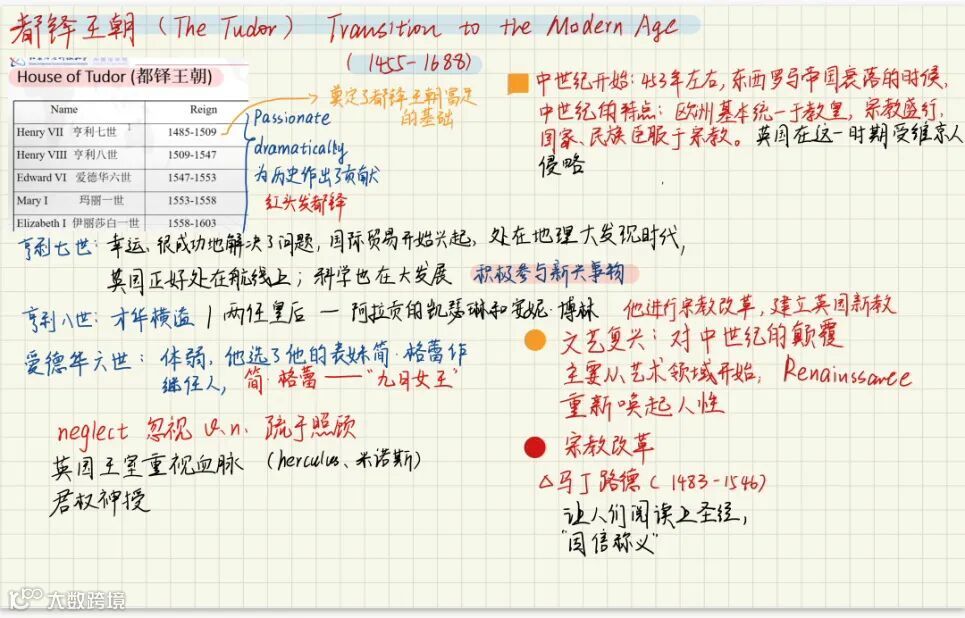 都铎王朝 (The Tudor) Transition to the Modern Age
(1455-1688)
House of Tudor (都铎王朝)
Name Reign
Henry VII 亨利七世 1485-1509
Henry VIII 亨利八世 1509-1547
Edward VI 爱德华六世 1547-1553
Mary I 玛丽一世 1553-1558
Elizabeth I 伊丽莎白一世 1558-1603
奠定了都铎王朝富足
的基础
Passionate
dramatically
为历史作出了贡献
红头发都铎
中世纪开始：453年左右，东西罗马帝国衰落的时候，
中世纪的特点：欧洲基本统一于教皇，宗教盛行，
国家、民族臣服于宗教。英国在这一时期受维京人
侵略
亨利七世：幸运、很成功地解决了问题，国际贸易开始兴起，处在地理大发现时代，
英国正好处在航线上；科学也在大发展 积极参与新兴事物
亨利八世：才华横溢 | 两任皇后 — 阿拉贡的凯瑟琳和安妮·博林 他进行宗教改革，建立英国新教
爱德华六世：体弱，他选了他的表妹简·格蕾作
继任人，简·格蕾——“九日女王”
文艺复兴：对中世纪的颠覆
主要从艺术领域开始，Renainssance
重新唤起人性
neglect 忽视 v.n. 疏于照顾
英国王室重视血脉 (herculus、米诺斯)
君权神授
宗教改革
△马丁路德(1483-1546)
让人们阅读上圣经，
“因信称义”
大数跨境